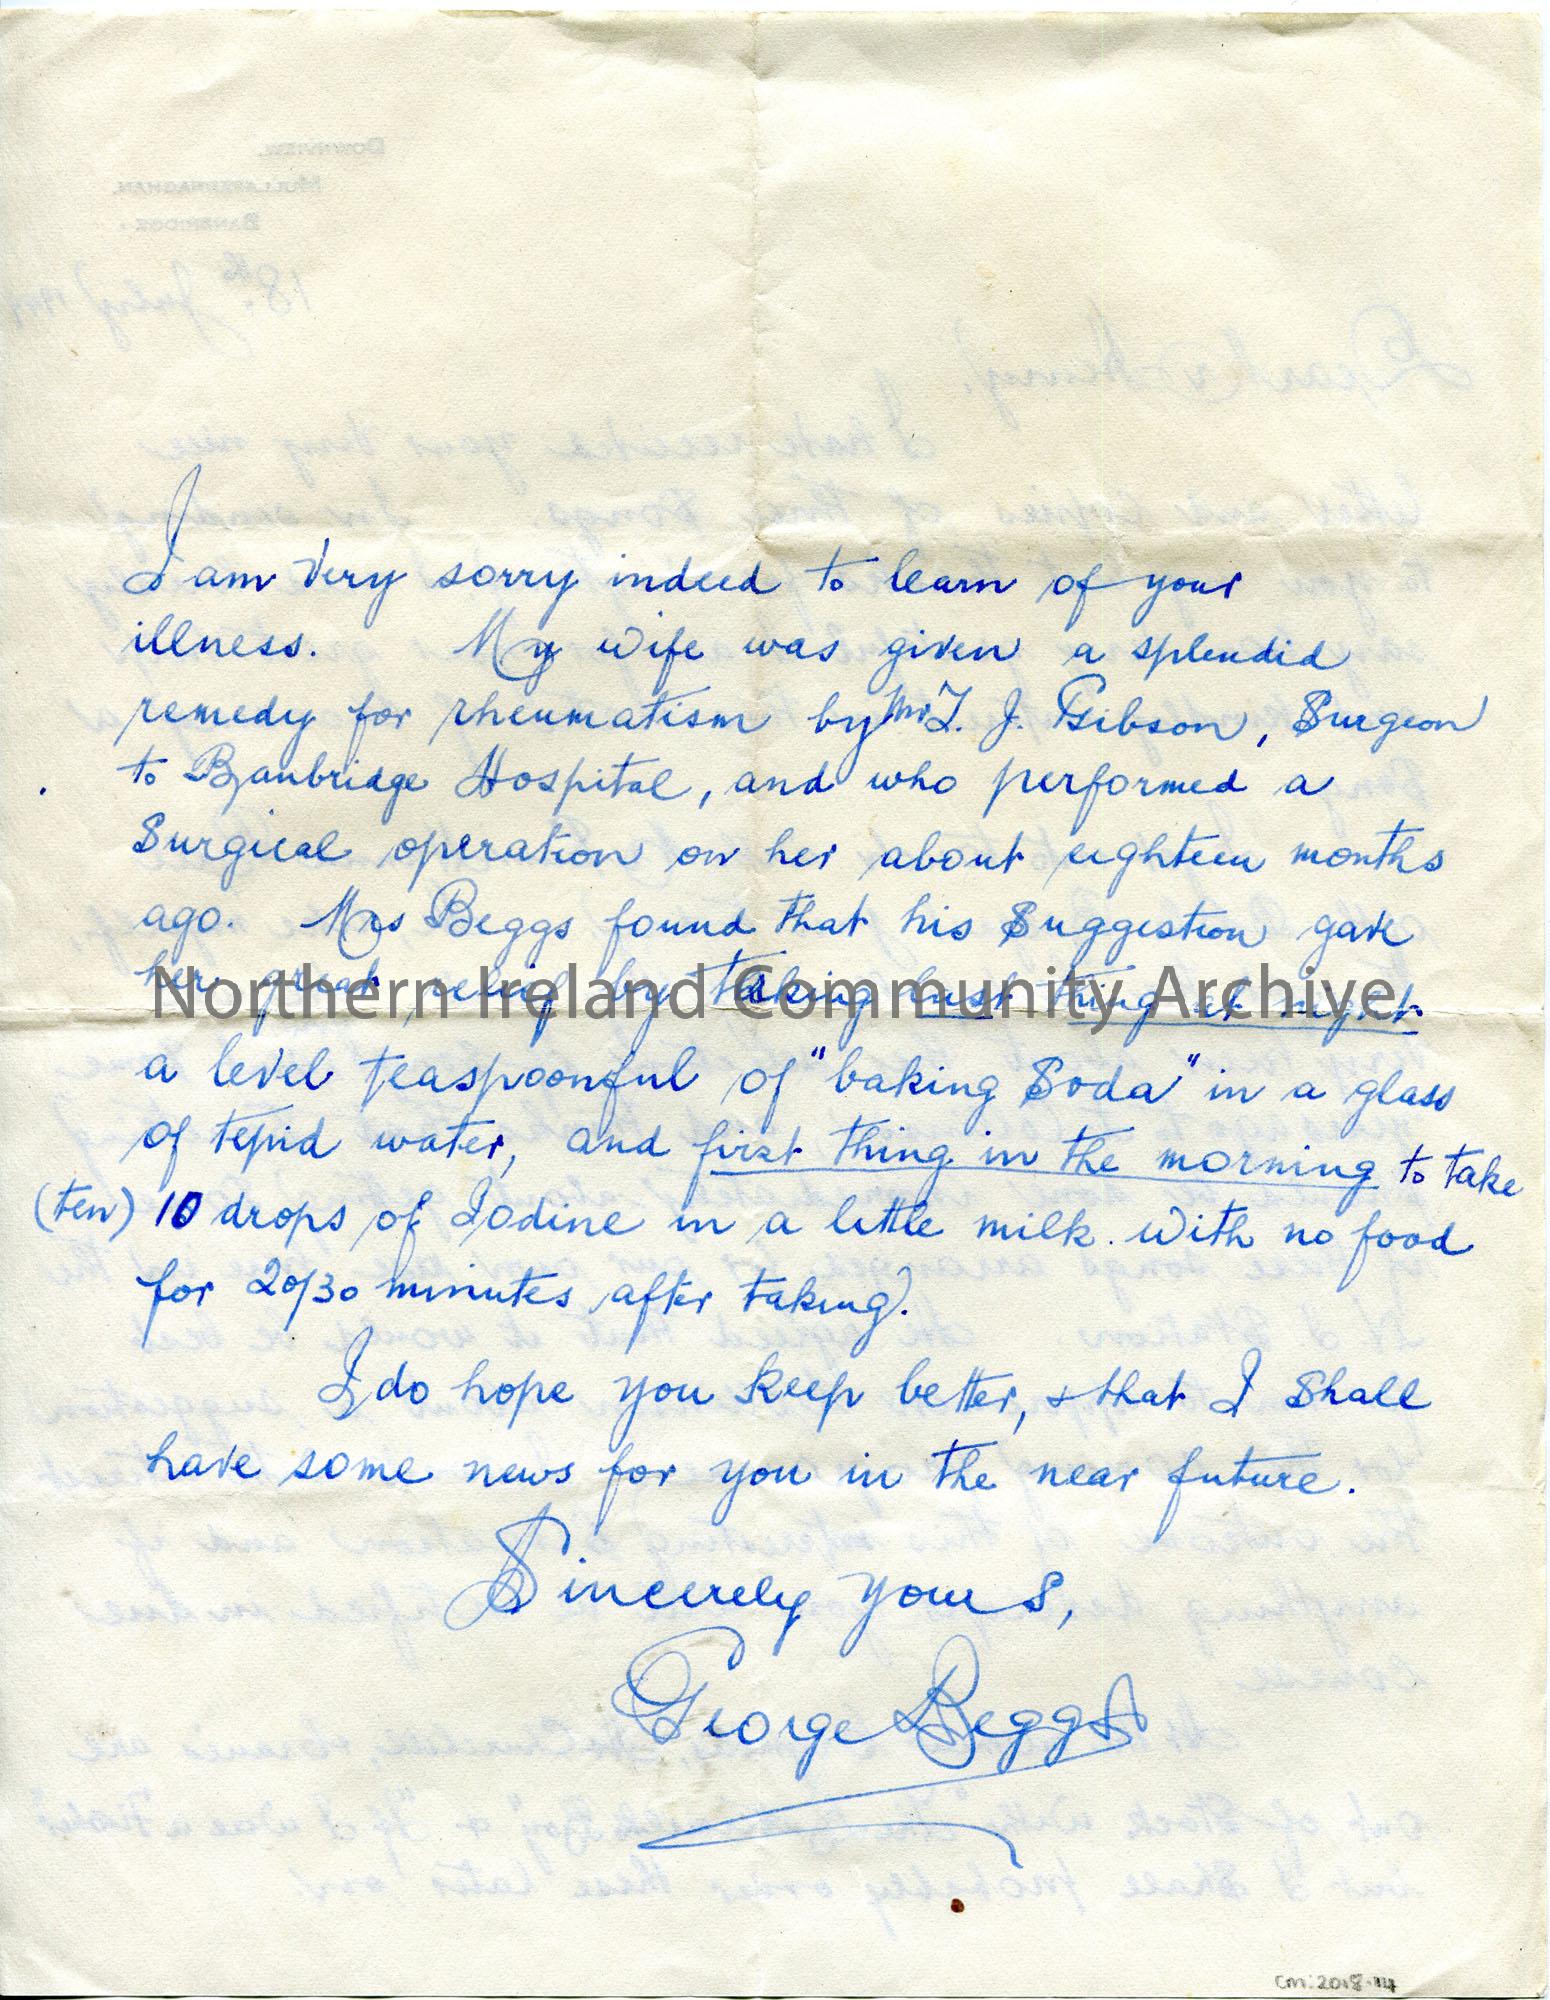 I am very sorry indeed to learn of your
illness. My wife was given a splendid
remedy for rheumatism by Mr T. J. Gibson, Surgeon
to Banbridge Hospital, and who performed a
Surgical operation on her about eighteen months
ago. Mrs Beggs found that his Suggestion gave
her great relief by taking last thing at night
Northern Ireland Community Archive
a level teaspoonful of "baking Soda" in a glass
of tepid water, and first thing in the morning to take
(ten) 10 drops of Iodine in a little milk. With no food
for 20/30 minutes after taking).
I do hope you keep better, & that I shall
have some news for you in the near future.
Sincerely yours,
George Beggs
CM:2018:114